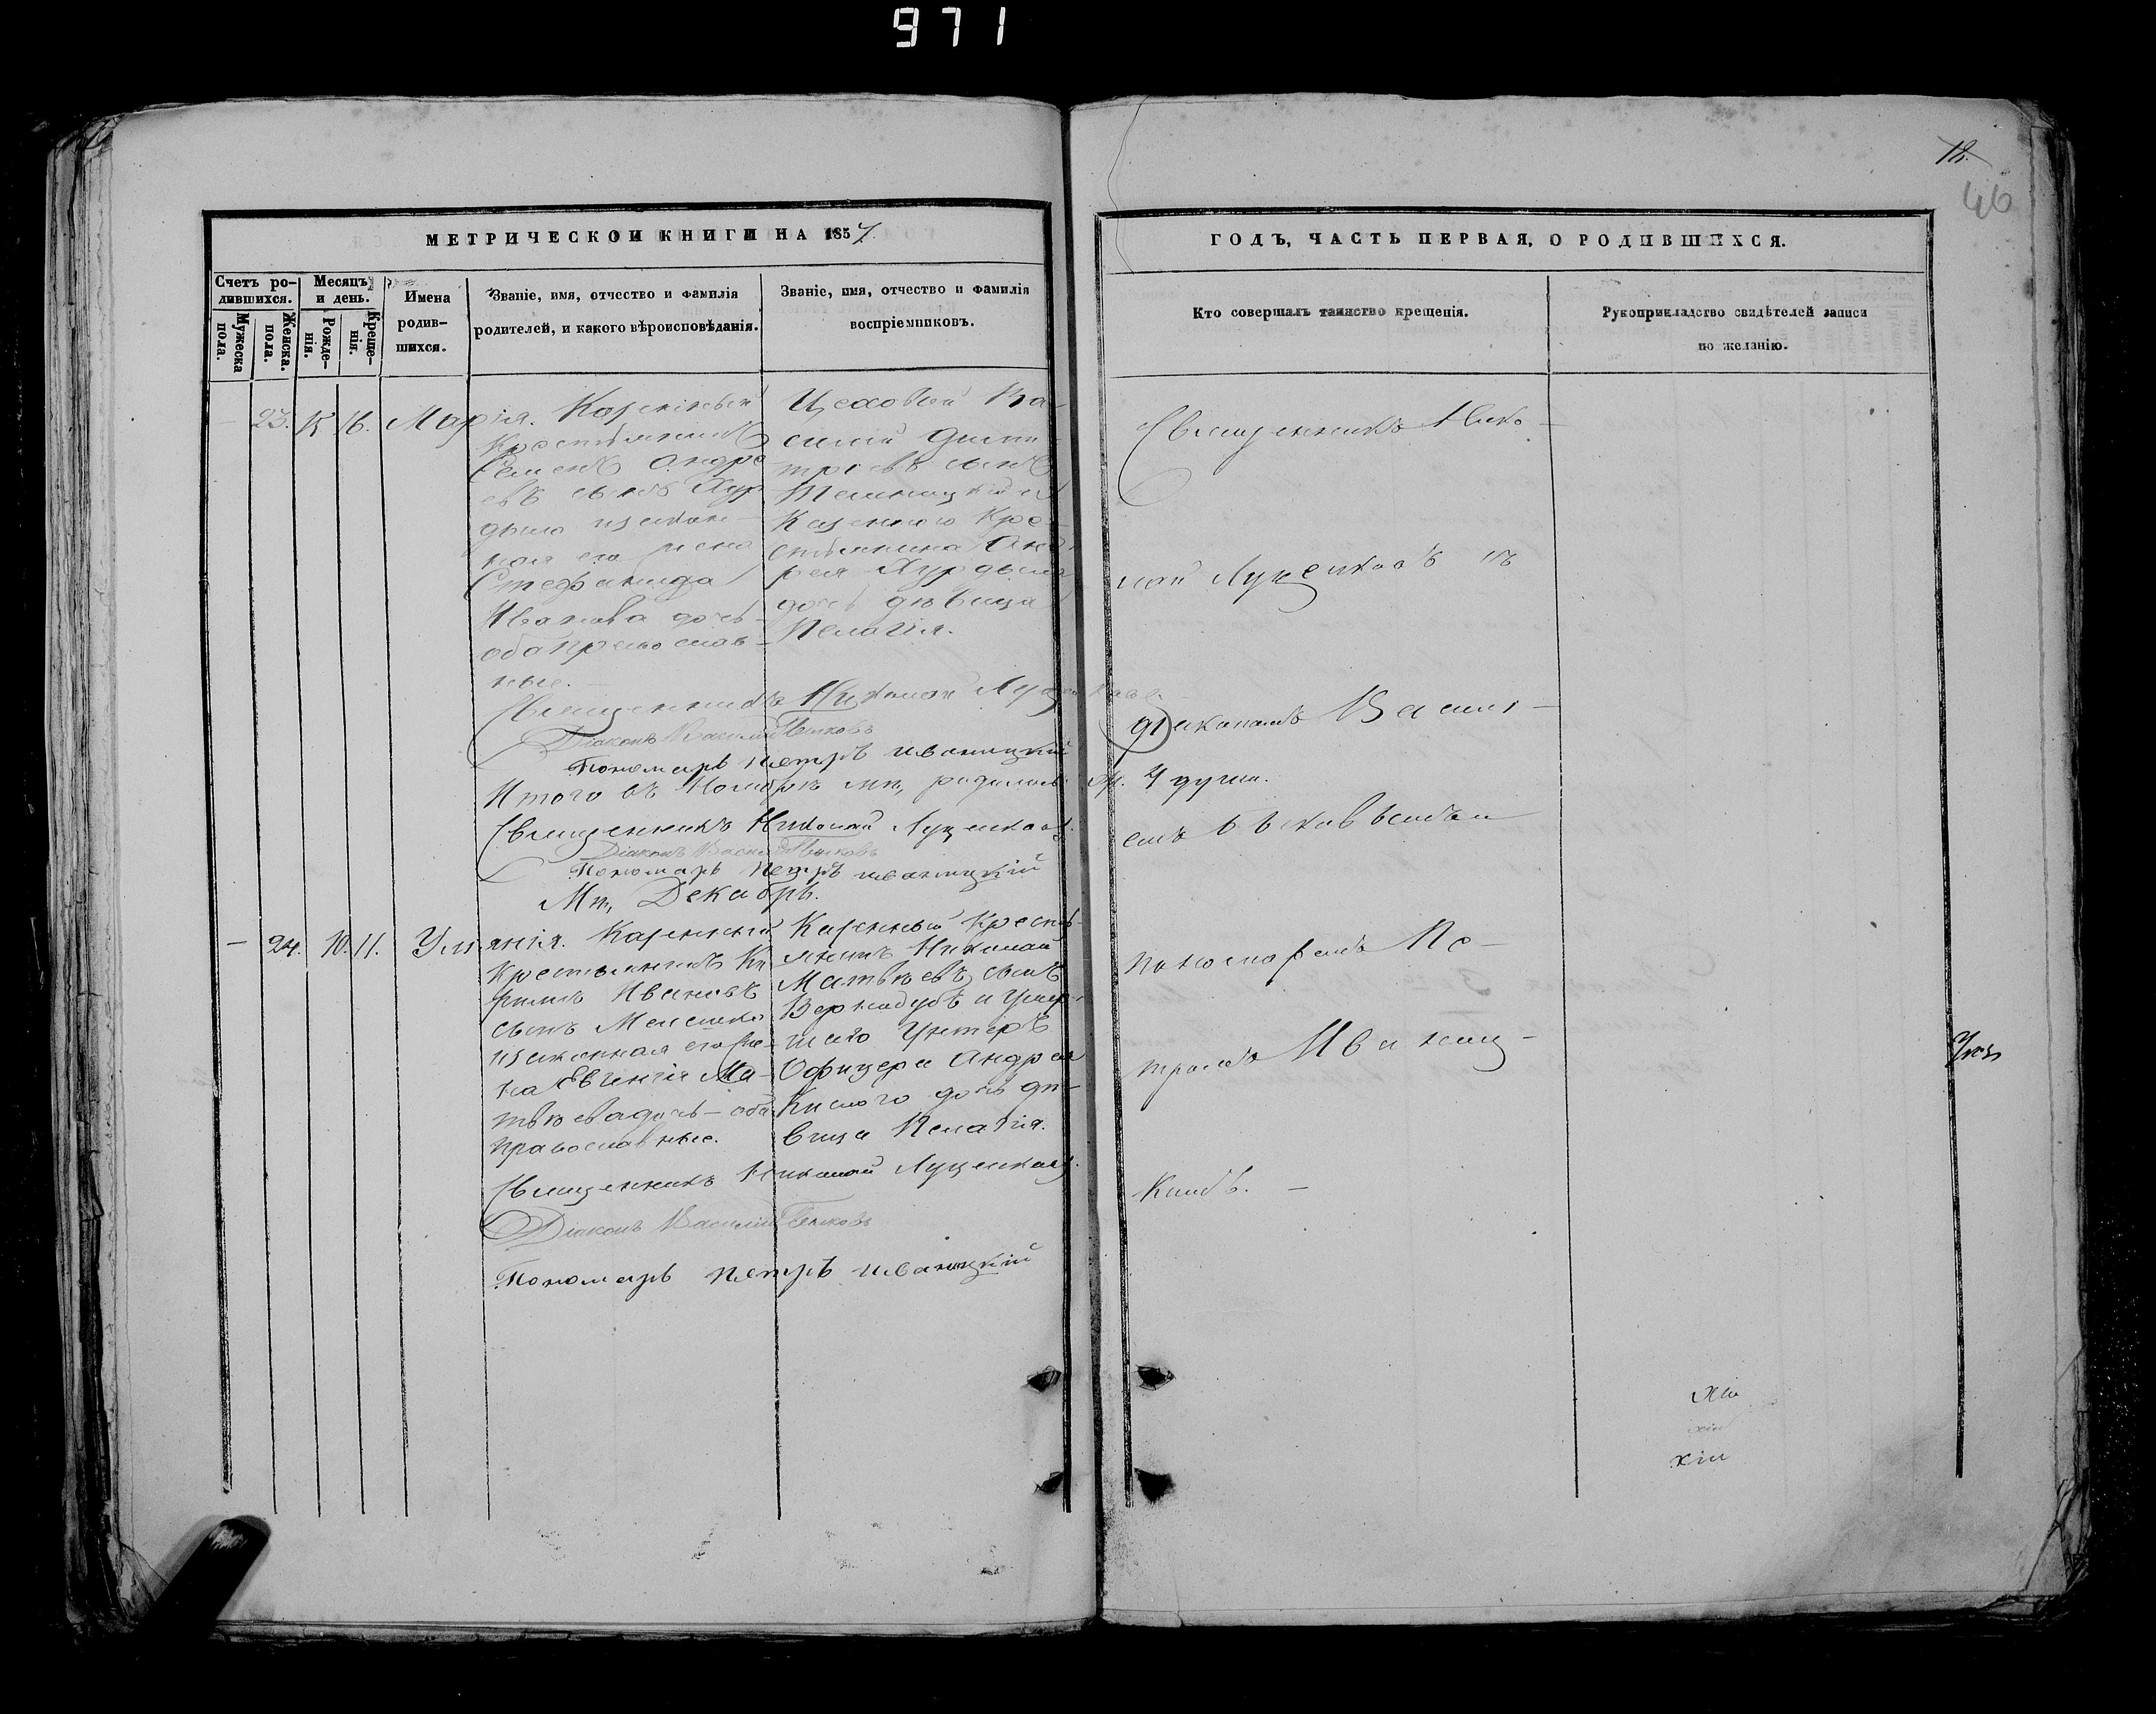 971
18.
46
МЕТРИЧЕСКОЙ КНИГИ НА 1857.
ГОДЪ, ЧАСТЬ ПЕРВАЯ, О РОДИВШИХСЯ.
Счетъ ро-
дившихся.
Мужеска
пола.
Женска.
пола.
Месяцъ
и день.
Рожде-
нія.
Креще-
нія.
Имена
родив-
шихся.
Званіе, имя, отчество и фамилія
родителей, и какого вѣроисповѣданія.
Званіе, имя, отчество и фамилія
воспріемниковъ.
Кто совершалъ таинство крещенія.
Рукоприкладство свидѣтелей записи
по желанію.
— 23. 15 16. Марія.
Казенный
Крестьянинъ
Семенъ Андре
евъ сынъ Хур
дыло и законе
ная его жена
Стефанида
Иванова дочь
оба православ-
ные.
Цеховой Ва-
силій Дими
тріевъ сынъ
Казенного Кре-
стьянина Анд
рея Хурдыла
дочь дѣвица
Пелагія.
Священникъ Николай Луценковъ
Діаконъ Василій
Пономарь Петръ Иваницкій
Итого въ Ноябрѣ мц, родилось ж. 4 души.
Священникъ Николай Луценковъ
Діаконъ Василій
Пономарь Петръ Иваницкій
Мц, Декабрь.
— 24. 10. 11. Уліянія.
Казенный
Крестьянинъ Ки
рилъ Ивановъ
сынъ
и законная его же-
на Евгенія Ма-
твѣева дочь — оба
православные.
Казенный Кресть-
янинъ Николай
Матвѣевъ сынъ
Вернидубъ и умер-
шаго Унтеръ
Офицера Андрея
Кислого дочь дѣ-
вица Пелагія.
Священникъ Николай Луценковъ.
Діаконъ Василій
Пономарь Петръ Иваницкій
Священникъ Нико-
лай Луценковъ съ
діакономъ Василі-
емъ
пономаремъ Пе-
тромъ Иваниц-
кимъ. —